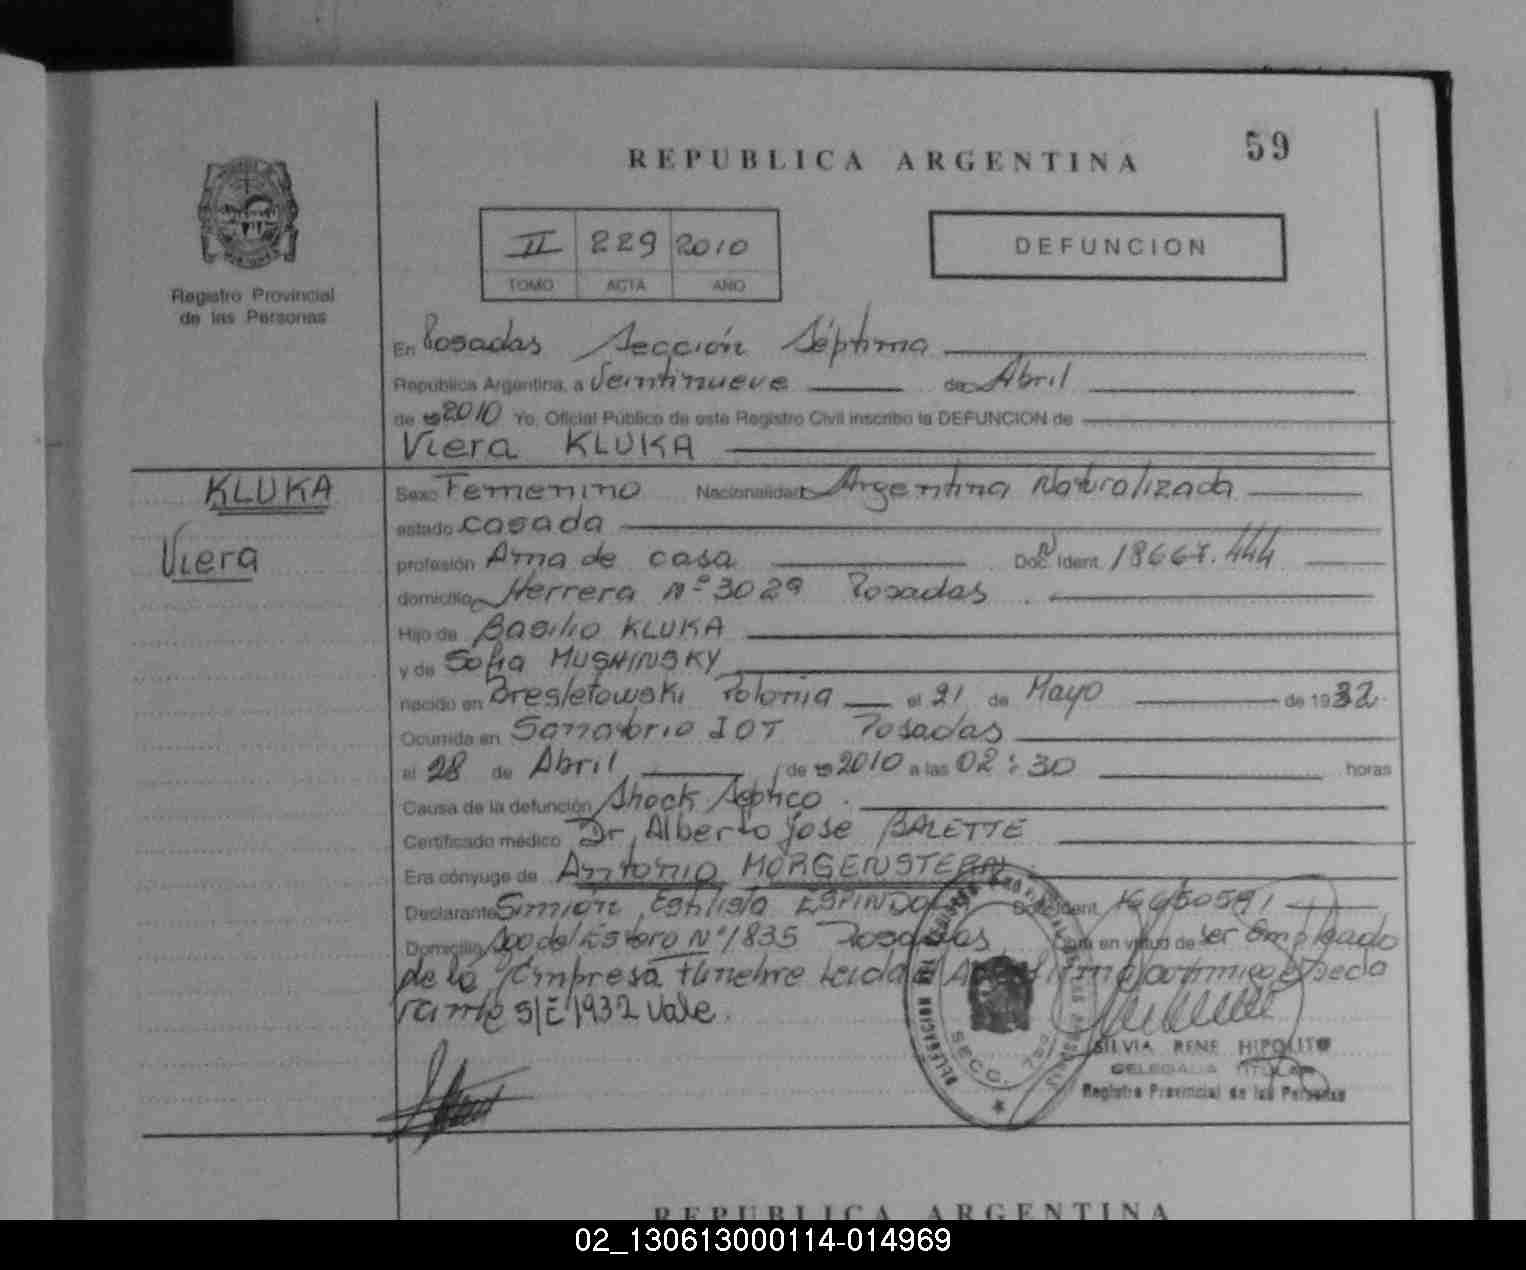 59
REPUBLICA ARGENTINA
II 229 2010
TOMO ACTA AÑO
DEFUNCION
Registro Provincial
de las Personas
En Posadas Sección Séptima
Republica Argentina, a Veintinueve de Abril
de 19 2010 Yo, Oficial Público de este Registro Civil inscribo la DEFUNCION de
Viera KLUKA
KLUKA
Viera
Sexo Femenino Nacionalidad Argentina Naturalizada
estado casada
profesión Ama de casa Doc. Ident. 18667.444
domicilio Herrera Nº 3029 Posadas
Hijo de Basilio KLUKA
y de Sofia MUSHINSKY
nacido en Bresletowski Polonia el 21 de Mayo de 1932
Ocurrida en Sanatorio IOT Posadas
el 28 de Abril de 19 2010 a las 02:30 horas
Causa de la defunción Shock Septico.
Certificado médico Dr. Alberto Jose BALETTE
Era cónyuge de Antonio MORGENSTERN
Declarante Simión Estilisto ESPINDOLA Doc. Ident.
Domicilio Sgo del Estero Nº 1835 Posadas Obra en virtud de ser Empleado
de la Empresa fúnebre
S/E 1932 Vale.
DELEGACION DEL REGISTRO PROVINCIAL DE LAS PERSONAS
SECC. 7ma
SILVIA RENE HIPOLITO
DELEGADA TITULAR
Registro Provincial de las Personas
REPUBLICA ARGENTINA
02_130613000114-014969